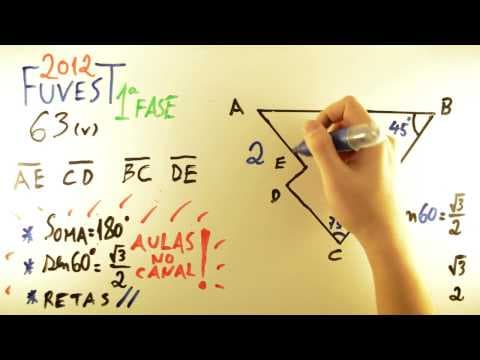 2012
FUVEST
1ª FASE
63 (V)
AE CD BC DE
* SOMA=180°
* sen60°=√3/2
* RETAS //
AULAS
NO
CANAL!
A
B
45°
2
E
D
75
C
n60=√3/2
√3
2